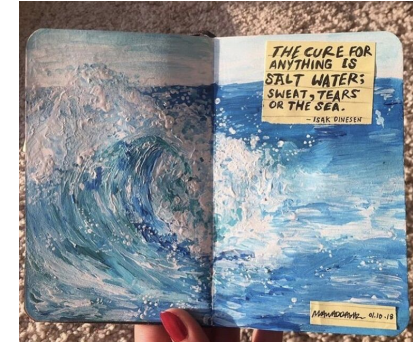 THE CURE FOR
ANYTHING IS
SALT WATER;
SWEAT, TEARS
OR THE SEA.
- ISAK DINESEN
01.10.18